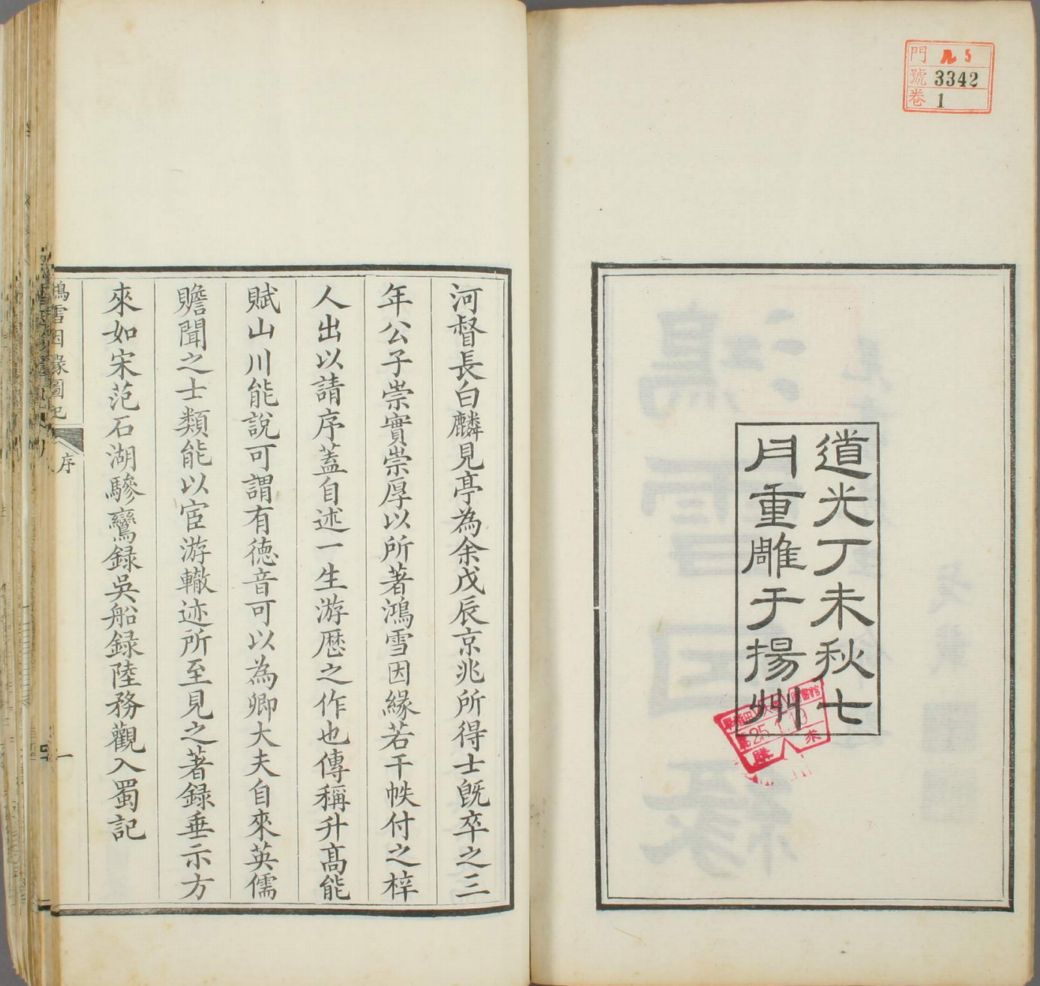 門 ル 5
號 3342
卷 1
道光丁未秋七
月重雕于揚州
河督長白麟見亭為余戊辰京兆所得士既卒之三
年公子崇實崇厚以所著鴻雪因緣若干帙付之梓
人出以請序蓋自述一生游歷之作也傳稱升高能
賦山川能說可謂有德音可以為卿大夫自來英儒
贍聞之士類能以宦游轍迹所至見之著錄垂示方
來如宋范石湖驂鸞錄吳船錄陸務觀入蜀記
鴻雪因緣圖記 序 一